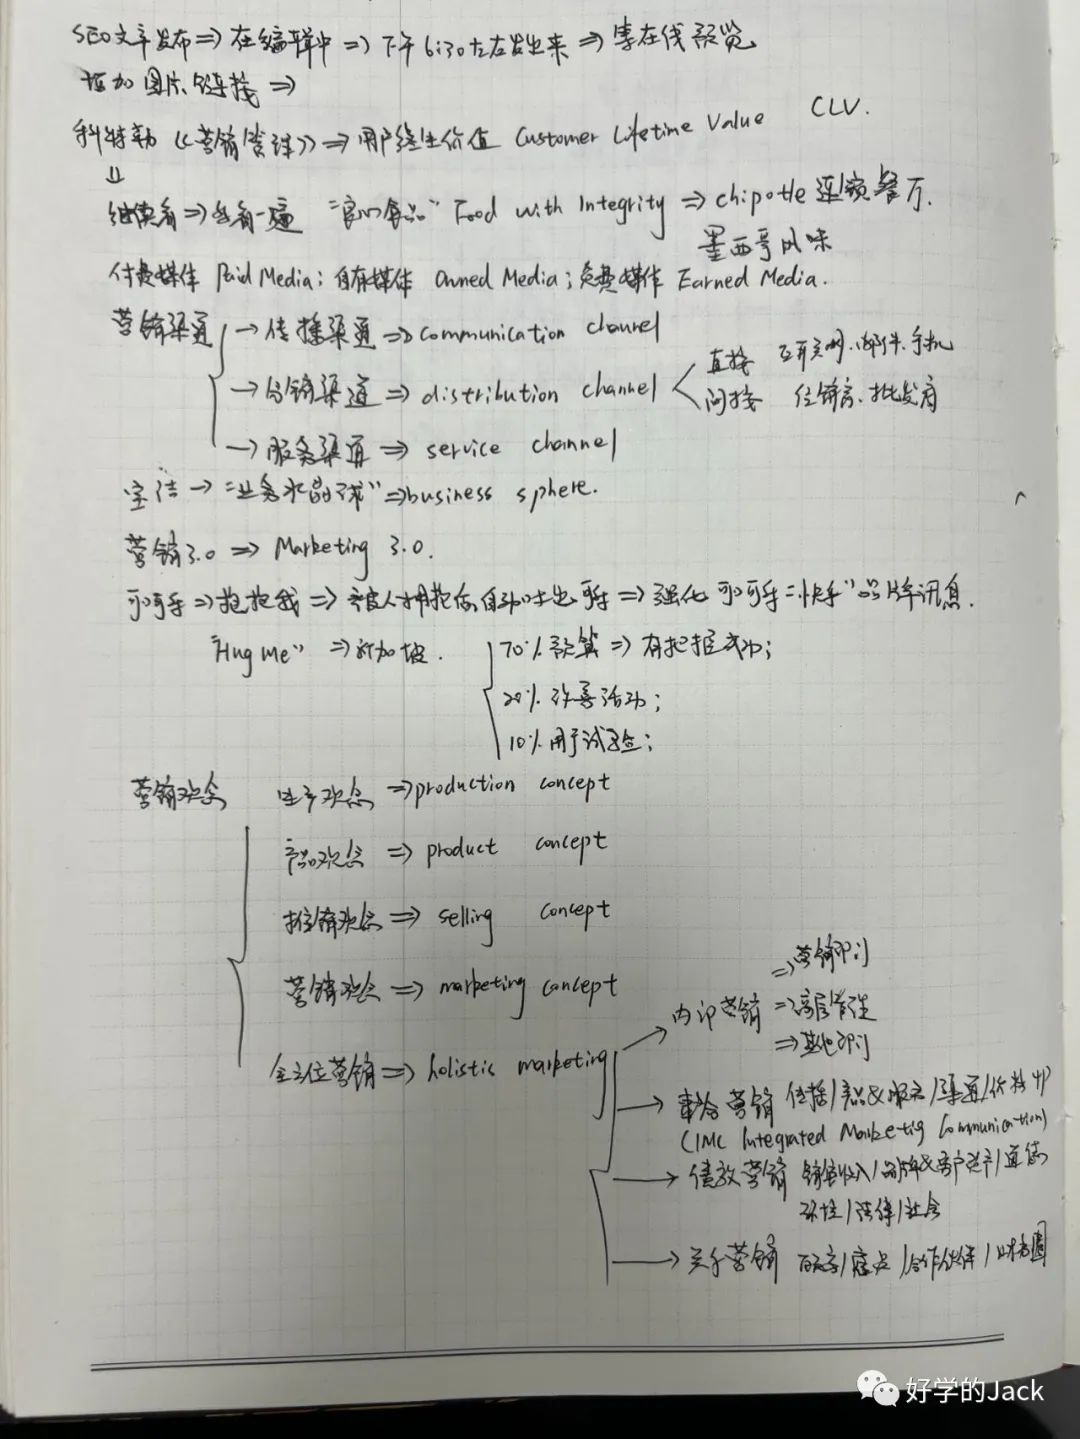 SEO文章发布⇒在编辑中⇒下午6:30左右发出来⇒季在线预览
添加图片、链接⇒
科特勒《营销管理》⇒用户终生价值 Customer Lifetime Value CLV.
⇓
继续看⇒再看一遍 "良心食品" Food with Integrity ⇒ chipotle 连锁餐厅.
墨西哥风味
付费媒体 Paid Media; 自有媒体 Owned Media; 免费媒体 Earned Media.
营销渠道 → 传播渠道 ⇒ communication channel
→ 分销渠道 ⇒ distribution channel
直接 互联网、邮件、手机
间接 经销商、批发商
→ 服务渠道 ⇒ service channel
宝洁 → "业务水晶球" ⇒ business sphere.
营销3.0 ⇒ Marketing 3.0.
可口可乐⇒抱抱我⇒被人拥抱后自动吐出可乐⇒强化可口可乐"快乐"品牌讯息.
"Hug me" ⇒新加坡.
70%预算⇒有把握成功;
20%改善活动;
10%用于试验;
营销观念 生产观念 ⇒ production concept
产品观念 ⇒ product concept
推销观念 ⇒ selling concept
营销观念 ⇒ marketing concept
全方位营销 ⇒ holistic marketing
→ 内部营销
⇒营销部门
⇒高层管理
⇒其他部门
→ 整合营销 传播/产品&服务/渠道/价格
(IMC Integrated Marketig Communication)
→ 绩效营销 销售收入/品牌&客户资产/道德
环境/法律/社会
→ 关系营销 顾客/员工/合作伙伴/财务圈
好学的Jack